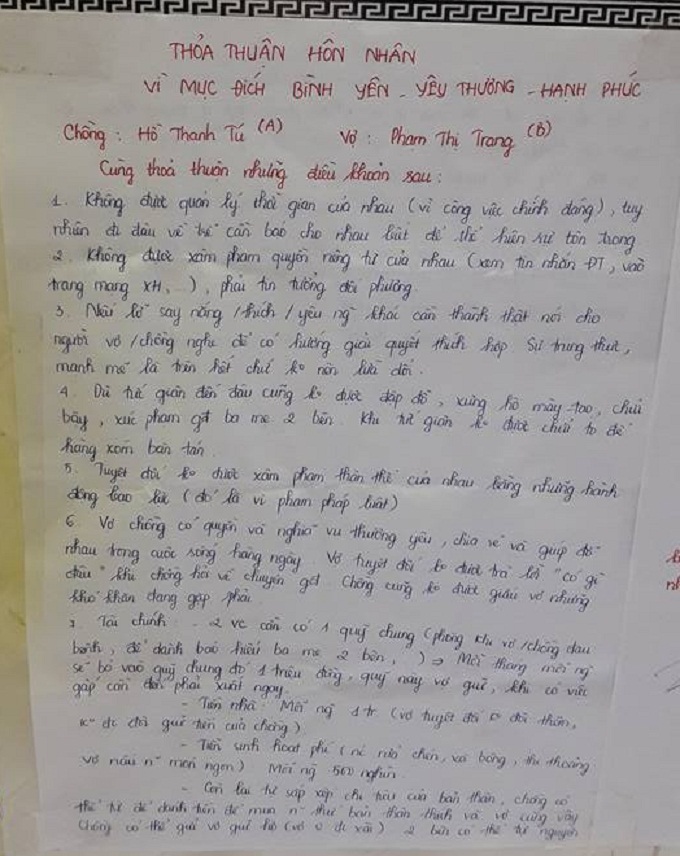 THỎA THUẬN HÔN NHÂN
VÌ MỤC ĐÍCH BÌNH YÊN - YÊU THƯƠNG - HẠNH PHÚC
Chồng : Hồ Thanh Tú (A) Vợ : Phạm Thị Trang (B)
Cùng thoả thuận những điều khoản sau :
1. Không được quản lý thời gian của nhau (vì công việc chính đáng), tuy
nhiên đi đâu về trễ cần báo cho nhau biết để thể hiện sự tôn trọng
2. Không được xâm phạm quyền riêng tư của nhau (xem tin nhắn ĐT, vào
trang mạng XH, ...), phải tin tưởng đối phương.
3. Nếu lỡ say nắng / thích / yêu ng khác cần thành thật nói cho
người vợ / chồng nghe để có hướng giải quyết thích hợp. Sự trung thực,
mạnh mẽ là trên hết chứ ko nên lừa dối.
4. Dù tức giận đến đâu cũng ko được đập đồ, xưng hô mày-tao, chửi
bậy, xúc phạm gđ ba mẹ 2 bên. Khi tức giận ko được chửi to để
hàng xóm bàn tán.
5. Tuyệt đối ko được xâm phạm thân thể của nhau bằng những hành
động bạo lực (đó là vi phạm pháp luật)
6. Vợ chồng có quyền và nghĩa vụ thương yêu, chia sẻ và giúp đỡ
nhau trong cuộc sống hàng ngày. Vợ tuyệt đối ko được trả lời "có gì
đâu" khi chồng hỏi về chuyện gđ. Chồng cũng ko được giấu vợ những
khó khăn đang gặp phải.
7. Tài chính : - 2 vc cần có 1 quỹ chung (phòng khi vợ/chồng đau
bệnh, để dành báo hiếu ba mẹ 2 bên, ) => Mỗi tháng mỗi ng
sẽ bỏ vào quỹ chung đó 1 triệu đồng, quỹ này vợ giữ, khi có việc
gấp cần đến phải xuất ngay.
- Tiền nhà : Mỗi ng 1tr (vợ tuyệt đối đòi thêm,
đi đòi giữ tiền của chồng).
- Tiền sinh hoạt phí ( rửa chén, xà bông, thi thoảng
vợ nấu n~ món ngon) Mỗi ng 500 nghìn.
- Còn lại tự sắp xếp chi tiêu của bản thân, chồng có
thể tự để dành tiền để mua n~ thứ bản thân thích và vợ cũng vậy
Chồng có thể gửi vợ giữ hộ (vợ đi xài) 2 bên có thể tự nguyện